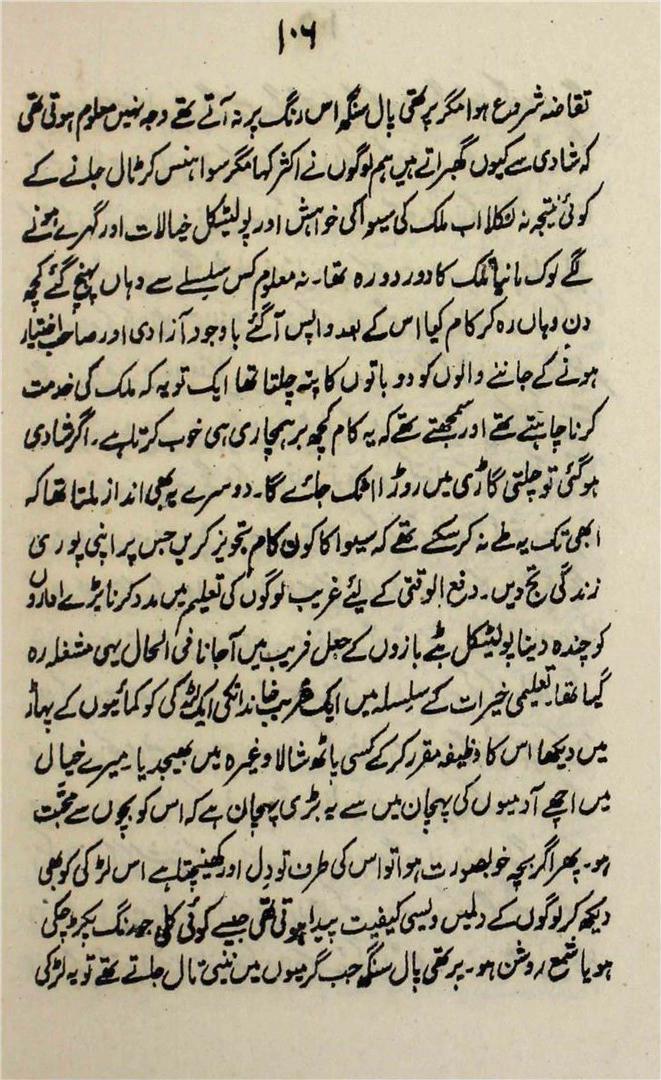 ۱۰۶
تقاضہ شروع ہوا مگر پرتھی پال سنگھ اس رنگ پر نہ آتے تھے وجہ نہیں معلوم ہوتی تھی
کہ شادی سے کیوں گھبراتے ہیں ہم لوگوں نے اکثر کہا مگر سوا ہنس کر ٹال جانے کے
کوئی نتیجہ نہ نکلا اب ملک کی سیوا کی خواہش اور پولیٹکل خیالات اور گہرے ہونے
لگے لوک مانیا تلک کا دور دورہ تھا۔ نہ معلوم کس سلسلے سے وہاں پہنچ گئے کچھ
دن وہاں رہ کر کام کیا اس کے بعد واپس آگئے باوجود آزادی اور صاحب اختیار
ہونے کے جاننے والوں کو دو باتوں کا پتہ چلتا تھا ایک تو یہ کہ ملک کی خدمت
کرنا چاہتے تھے اور سمجھتے تھے کہ یہ کام کچھ برہمچاری ہی خوب کرتا ہے۔ اگر شادی
ہو گئی تو چلتی گاڑی میں روڑا اٹک جائے گا۔ دوسرے یہ بھی انداز ملتا تھا کہ
ابھی تک یہ طے نہ کر سکے تھے کہ سیوا کا کون کام تجویز کریں جس پر اپنی پوری
زندگی تج دیں۔ دفع الوقتی کے لئے غریب لوگوں کی تعلیم میں مدد کرنا بڑے اداروں
کو چندہ دینا پولیٹکل بٹے بازوں کے جعل فریب میں آجانا فی الحال یہی مشغلہ رہ
گیا تھا۔ تعلیمی خیرات کے سلسلہ میں ایک غریب خاندانکی ایک لڑکی کو کمائیوں کے پہاڑ
میں دیکھا اس کا وظیفہ مقرر کر کے کسی پاٹھ شالا وغیرہ میں بھیجدیا۔ میرے خیال
میں اچھے آدمیوں کی پہچان میں سے یہ بڑی پہچان ہے کہ اس کو بچوں سے محبّت
ہو۔ پھر اگر بچہ خوبصورت ہوا تو اس کی طرف تو دل اور کھینچتا ہے اس لڑکی کو بھی
دیکھ کر لوگوں کے دلمیں ویسی کیفیت پیدا ہوتی تھی جیسے کوئی کلی رنگ پکڑ چکی
ہو یا شمع روشن ہو۔ پرتھی پال سنگھ جب گرمیوں میں نینی تال جاتے تھے تو یہ لڑکی